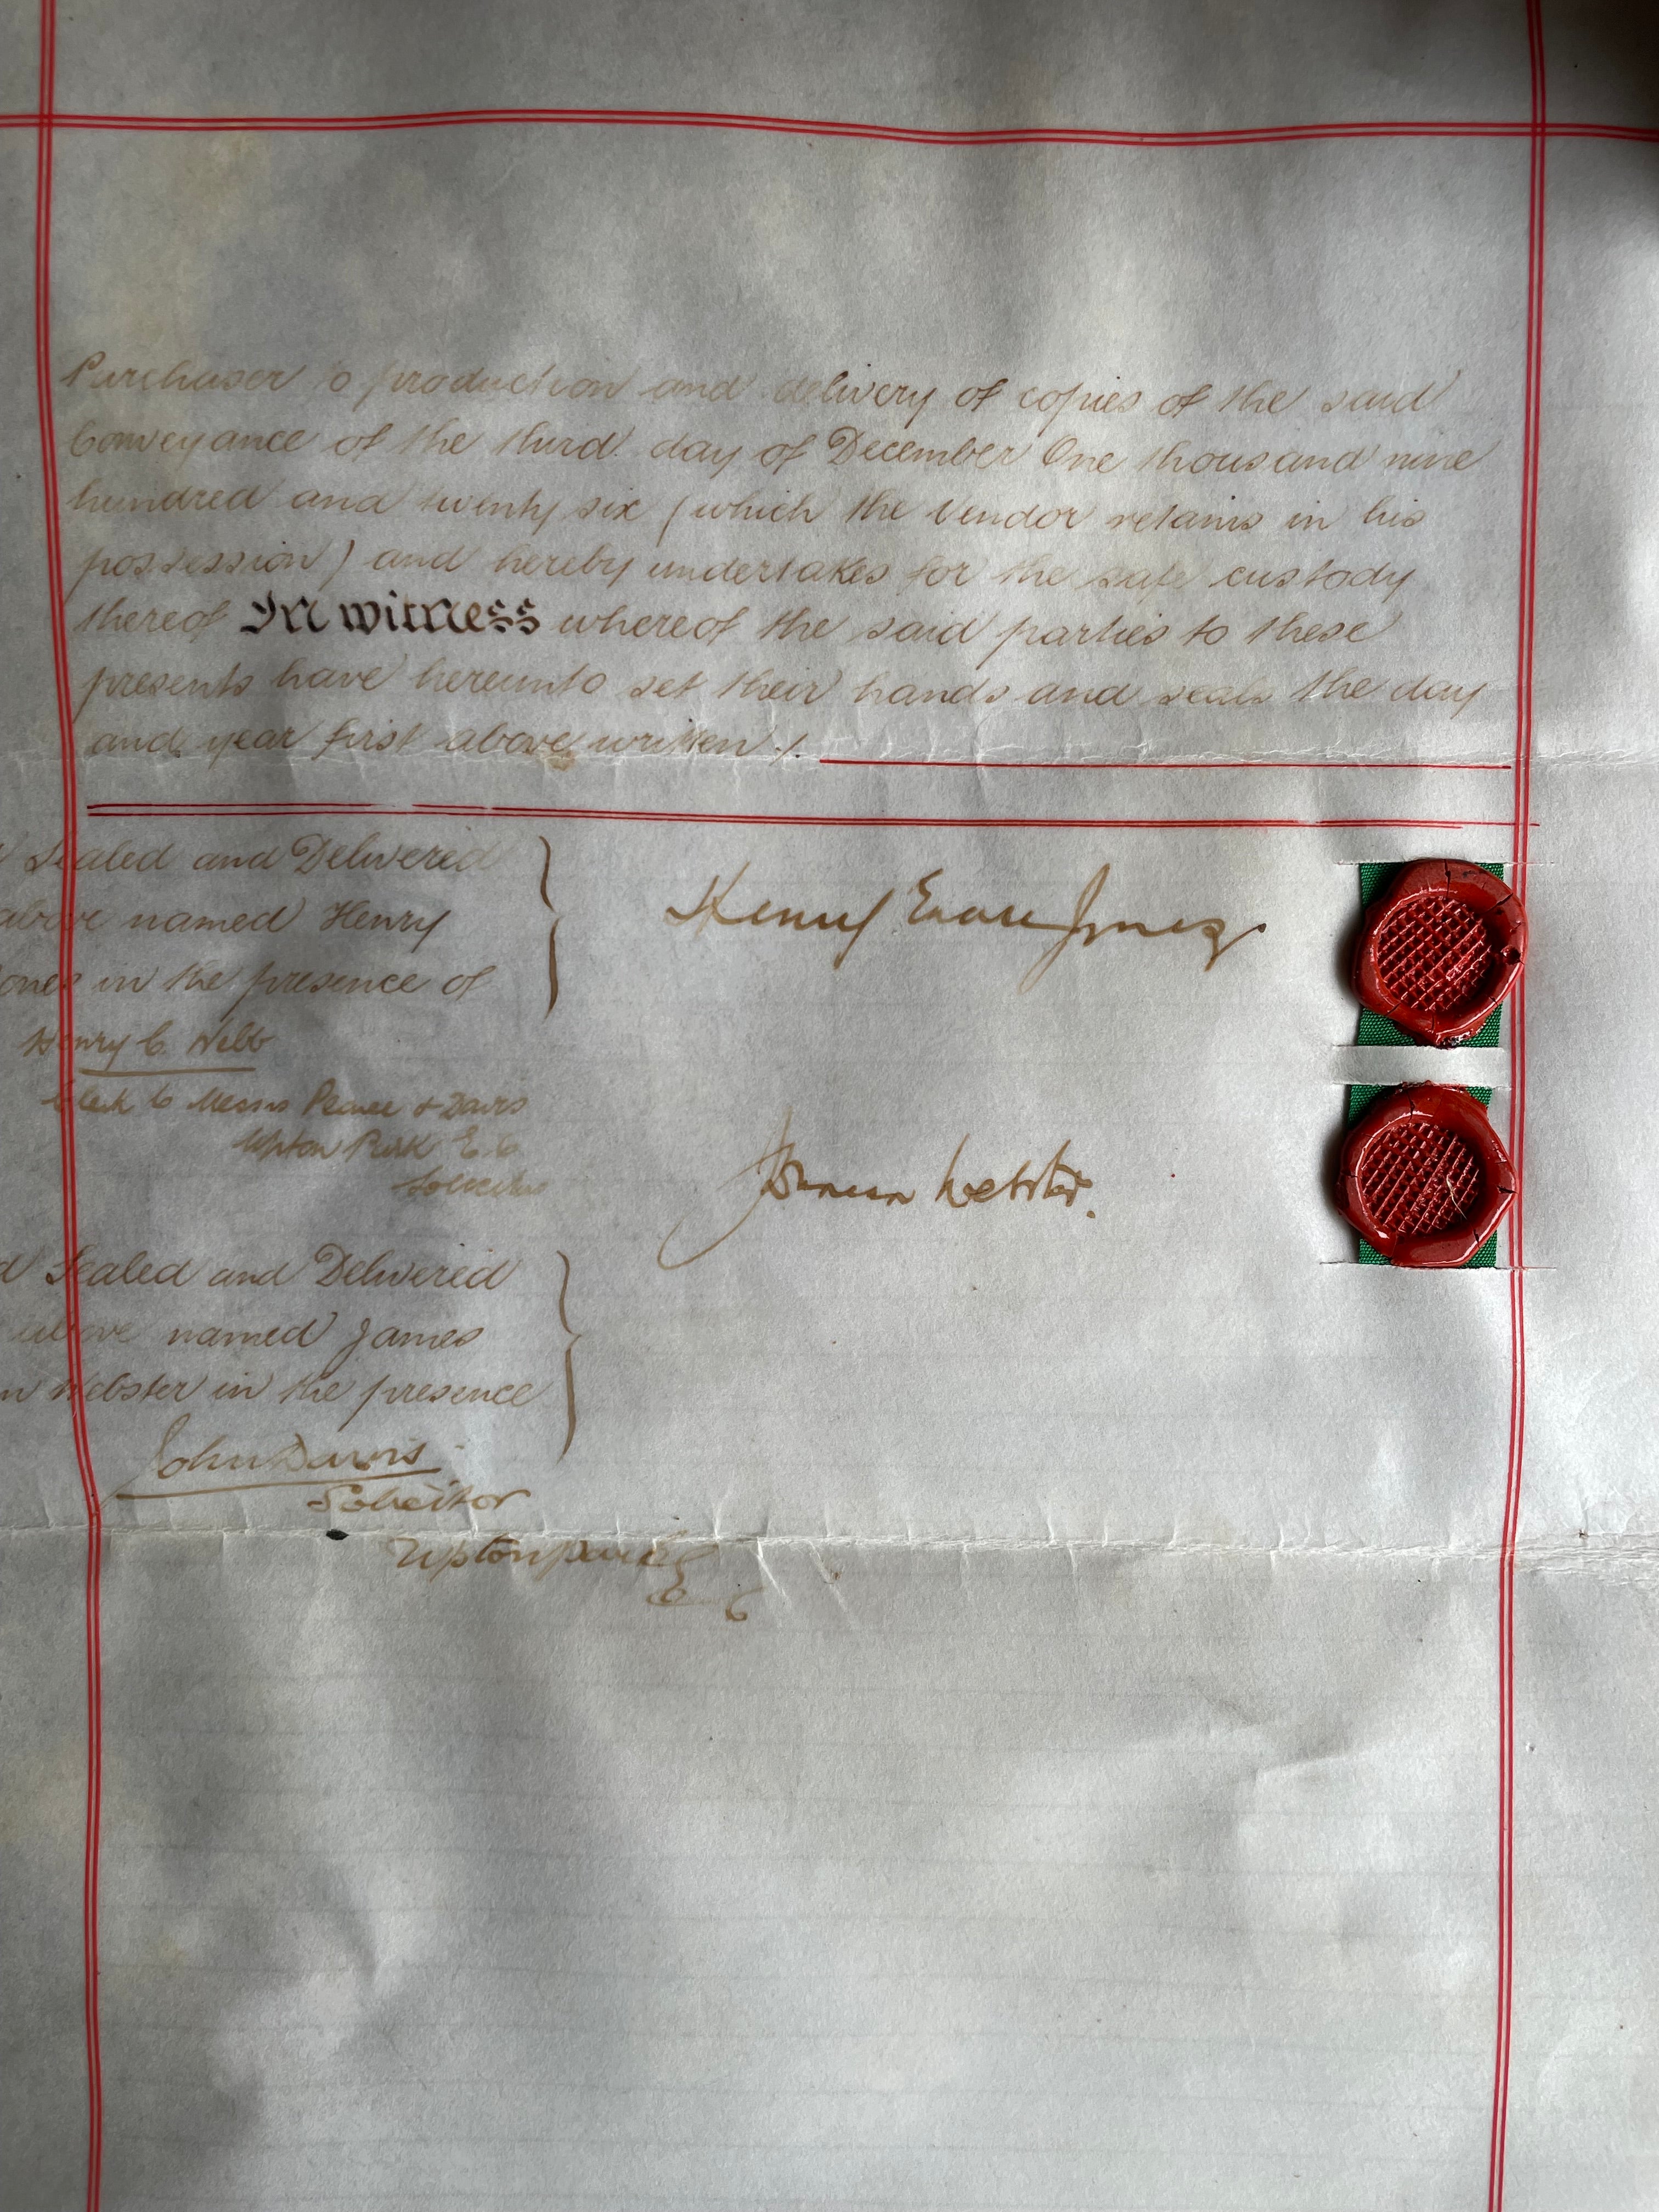 Purchaser to production and delivery of copies of the said
Conveyance of the third day of December One thousand nine
hundred and twenty six (which the Vendor retains in his
possession) and hereby undertakes for the safe custody
thereof In witness whereof the said parties to these
presents have hereunto set their hands and seals the day
and year first above written ./.
Sealed and Delivered
above named Henry
ones in the presence of
Henry C. Webb
Clerk to Messrs Pearce & Davis
Upton Park E.6
Solicitors
Henry Evan Jones
Duncan Webster.
d Sealed and Delivered
above named James
n Webster in the presence
John Davis
Solicitor
Upton park
E 6